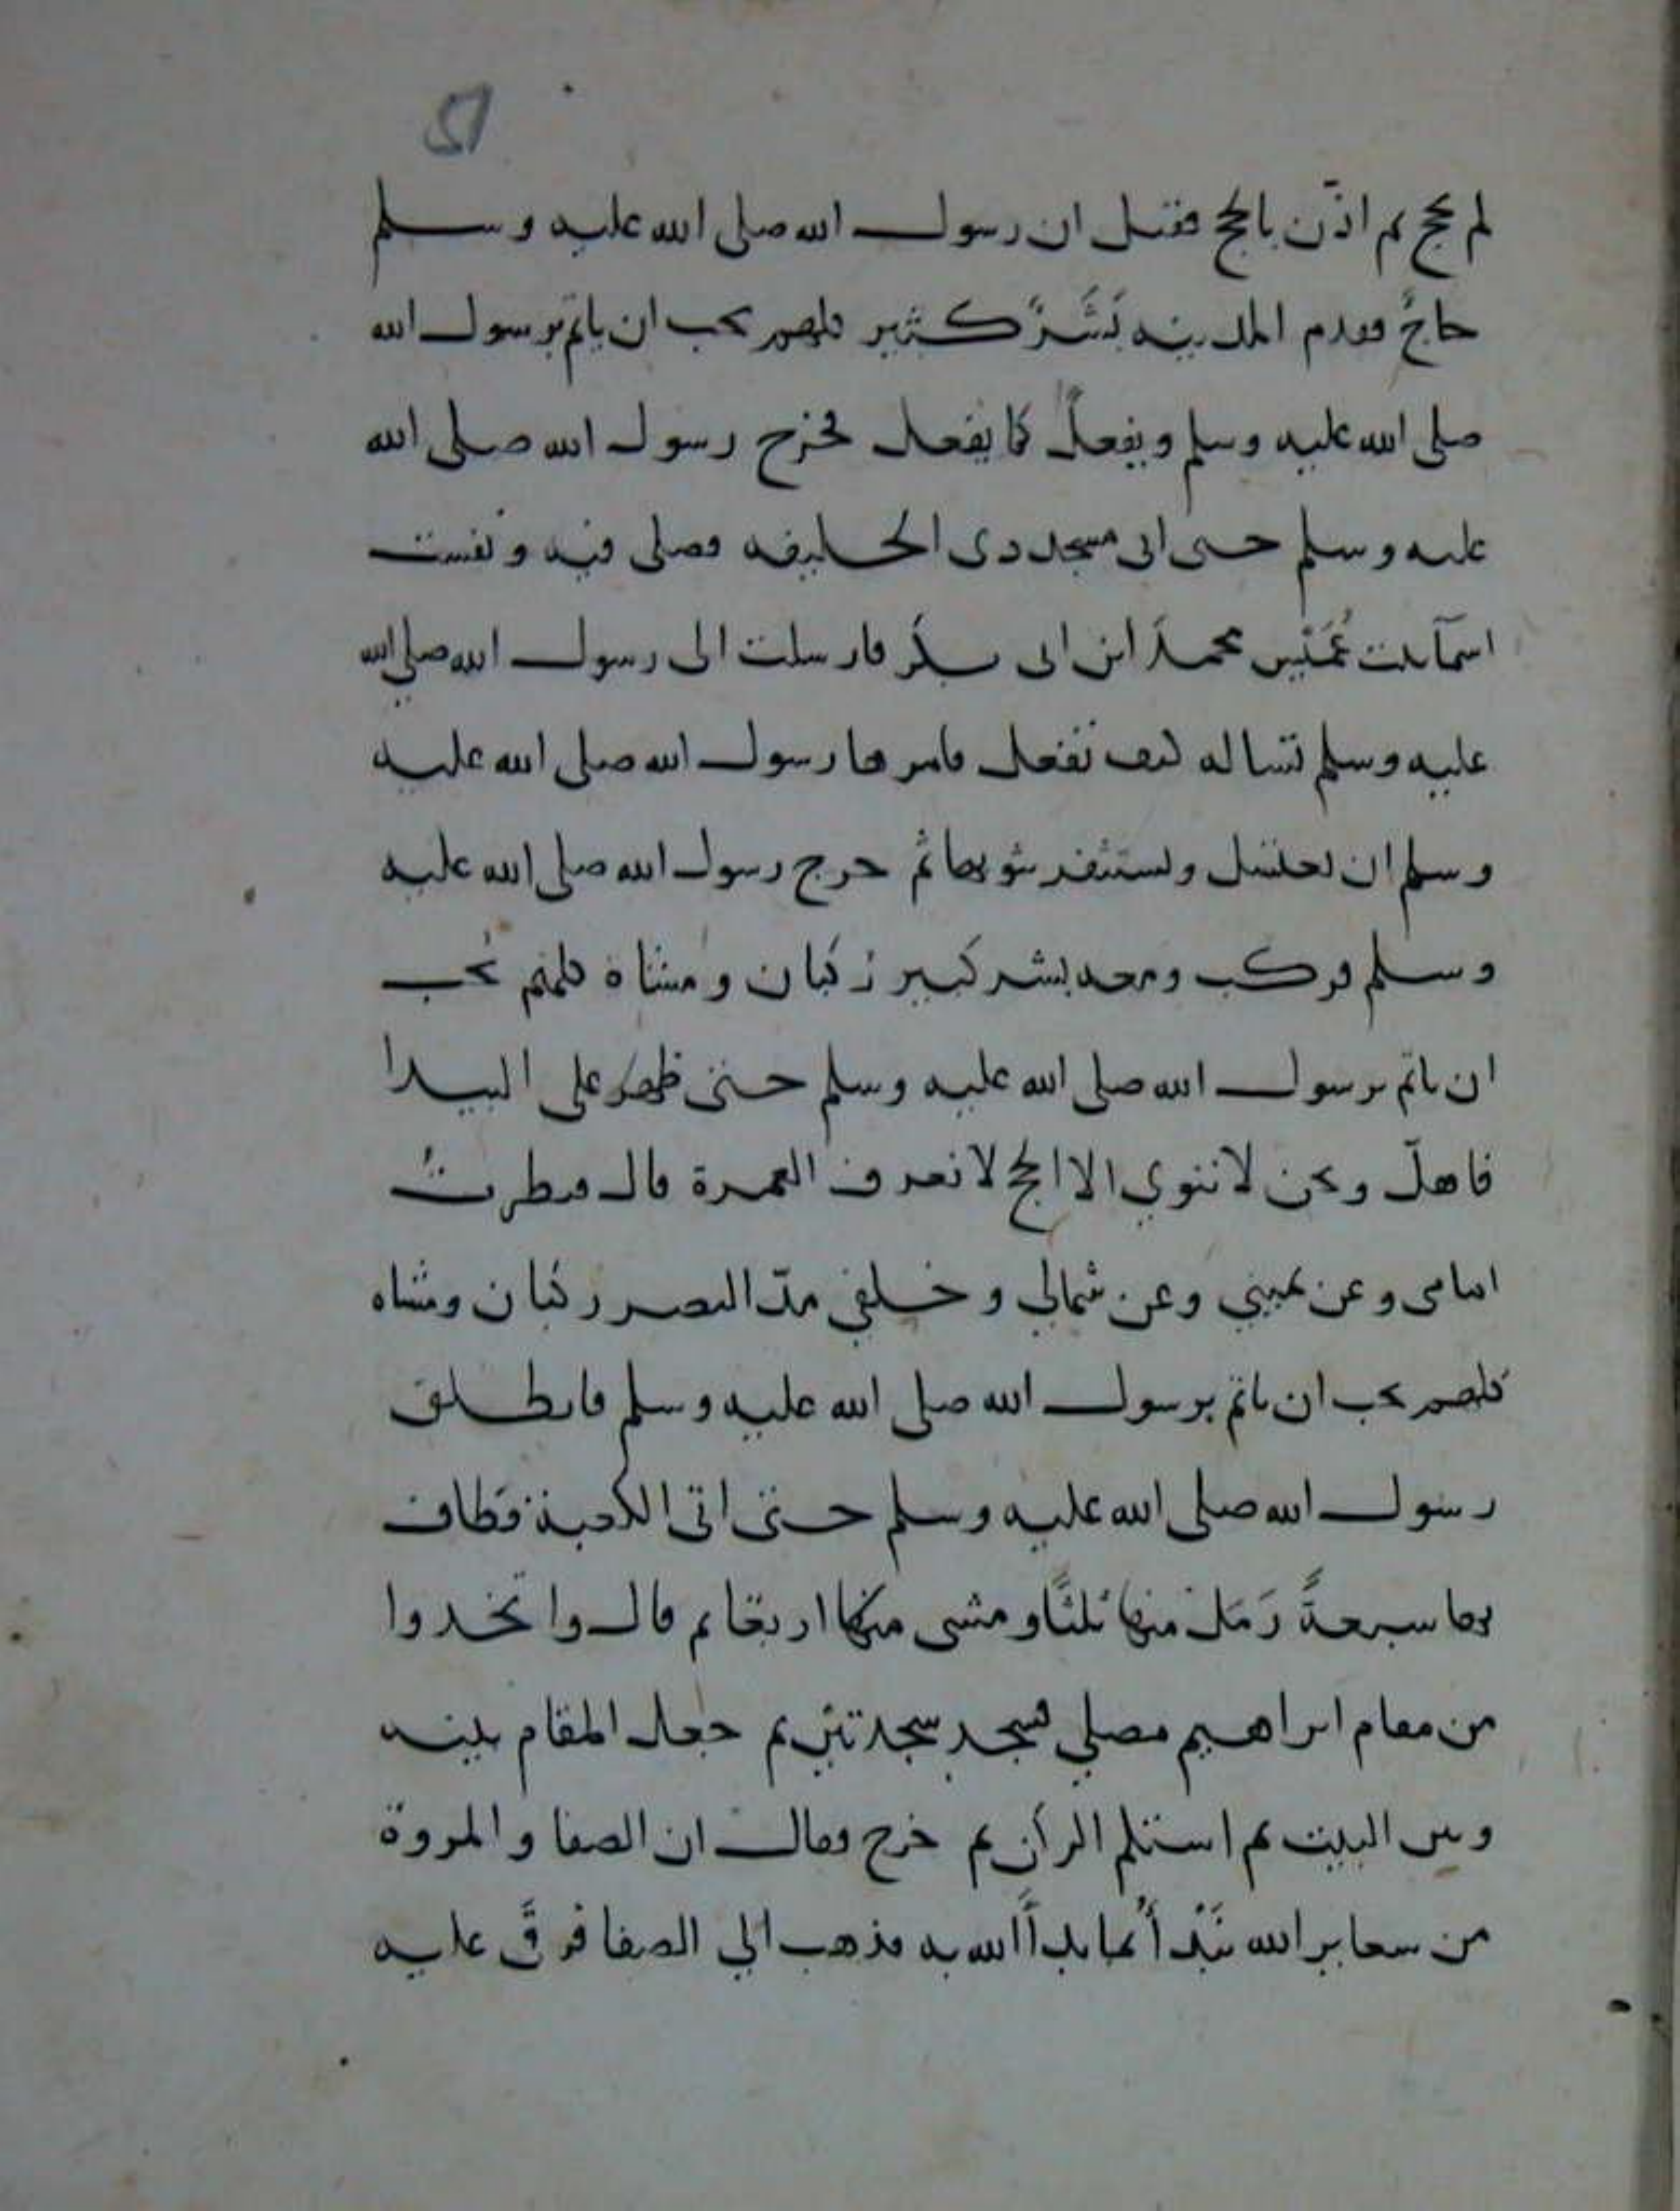 لم يحج ثم اذّن بالحج فقيل ان رسول الله صلى الله عليه وسلم
حاجٌ فقدم المدينه بَشَرٌ كثير كلهم يحب ان ياتمّ برسول الله
صلى الله عليه وسلم ويفعل كما يفعل فخرج رسول الله صلى الله
عليه وسلم حتى اتى مسجد ذى الحليفه فصلى فيه ونفست
اسمآ بنت عُمَيْس محمدَ ابن ابى بكر فارسلت الى رسول الله صلى الله
عليه وسلم تساله كيف تفعل فامرها رسول الله صلى الله عليه
وسلم ان تغتسل وتستثفر بثوبها ثم خرج رسول الله صلى الله عليه
وسلم فركب ومعه بشر كبير ركبان ومشاة كلهم يحب
ان ياتمّ برسول الله صلى الله عليه وسلم حتى ظهر على البيدا
فاهلّ ونحن لا ننوي الا الحج لا نعرف العمرة قال فنظرتُ
امامى وعن يميني وعن شمالي وخلفي مدّ البصر ركبان ومشاه
كلهم يحب ان ياتمّ برسول الله صلى الله عليه وسلم فانطلق
رسول الله صلى الله عليه وسلم حتى اتى الكعبة فطاف
بها سبعةً رَمَل منها ثلثًا ومشى منها اربعا ثم قال واتخذوا
من مقام ابراهيم مصلي فسجد سجدتين ثم جعل المقام بينه
وبين البيت ثم استلم الركن ثم خرج وقال ان الصفا والمروة
من شعاير الله نَبْدأُ بما بدأَ الله به فذهب الي الصفا فرقَى عليه